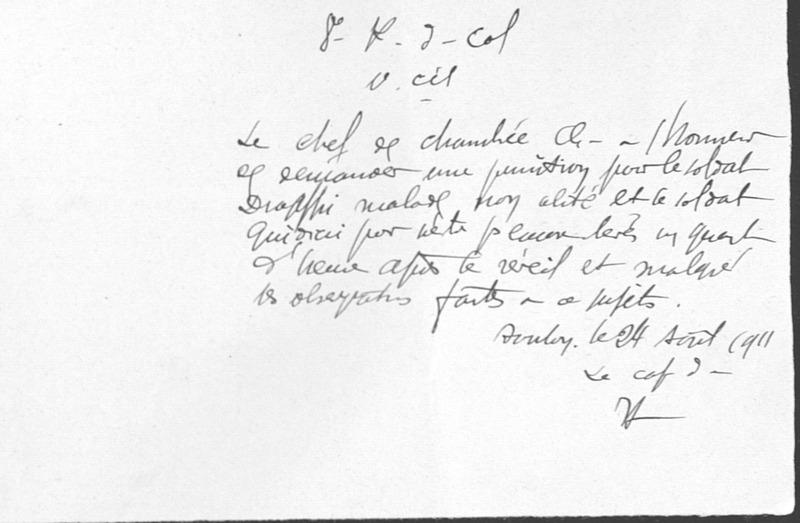 8- R. d- col
v. cit
Le chef de chambrée Ch- a l'honneur
de demander une punition pour le soldat
malade non alité et le soldat
pour être levés un quart
d'heure après le réveil et malgré
les observations faites a ce sujets.
Toulon. le 24 Août 1911
Le caf d-